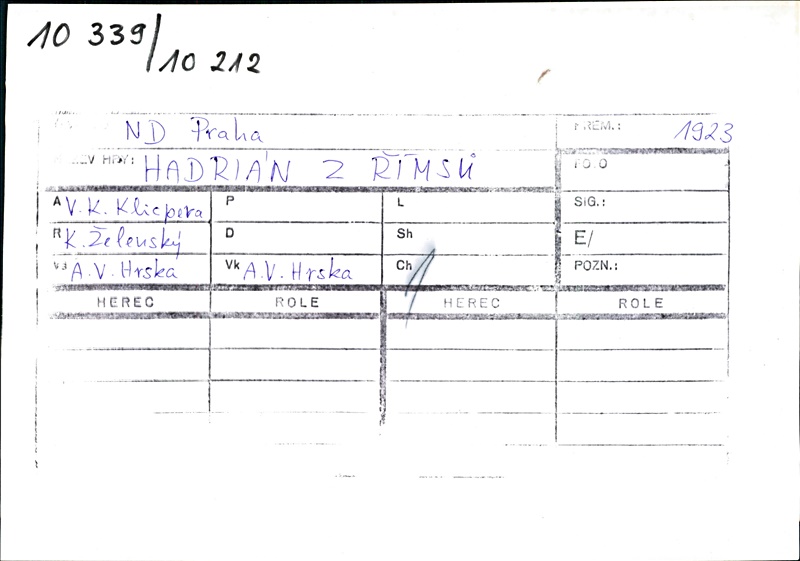 10 339/
10 212
ND Praha PREM.: 1923
HRY: HADRIÁN Z ŘÍMSŮ FOTO
A V. K. Klicpera P L SIG.:
R K. Želenský D Sh E/
A. V. Hrska Vk A. V. Hrska Ch POZN.:
HEREC ROLE HEREC ROLE